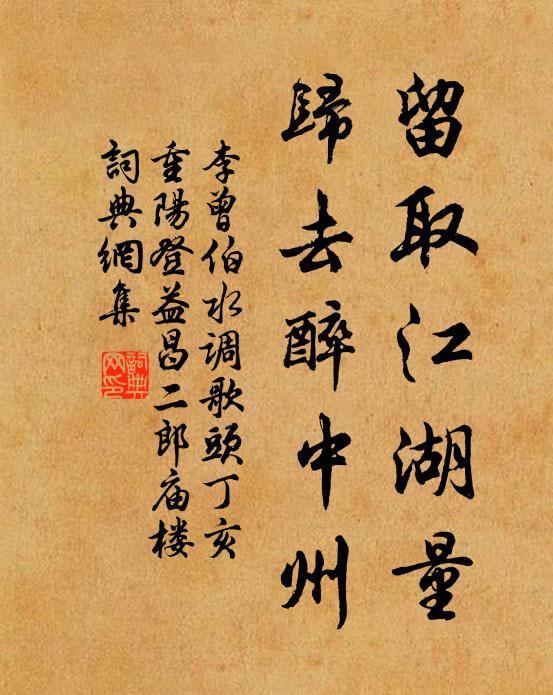 留取江湖量
歸去醉中州
李曾伯水调歌頭丁亥
重陽登益昌二郎庙楼
詞典網集
詞典網印